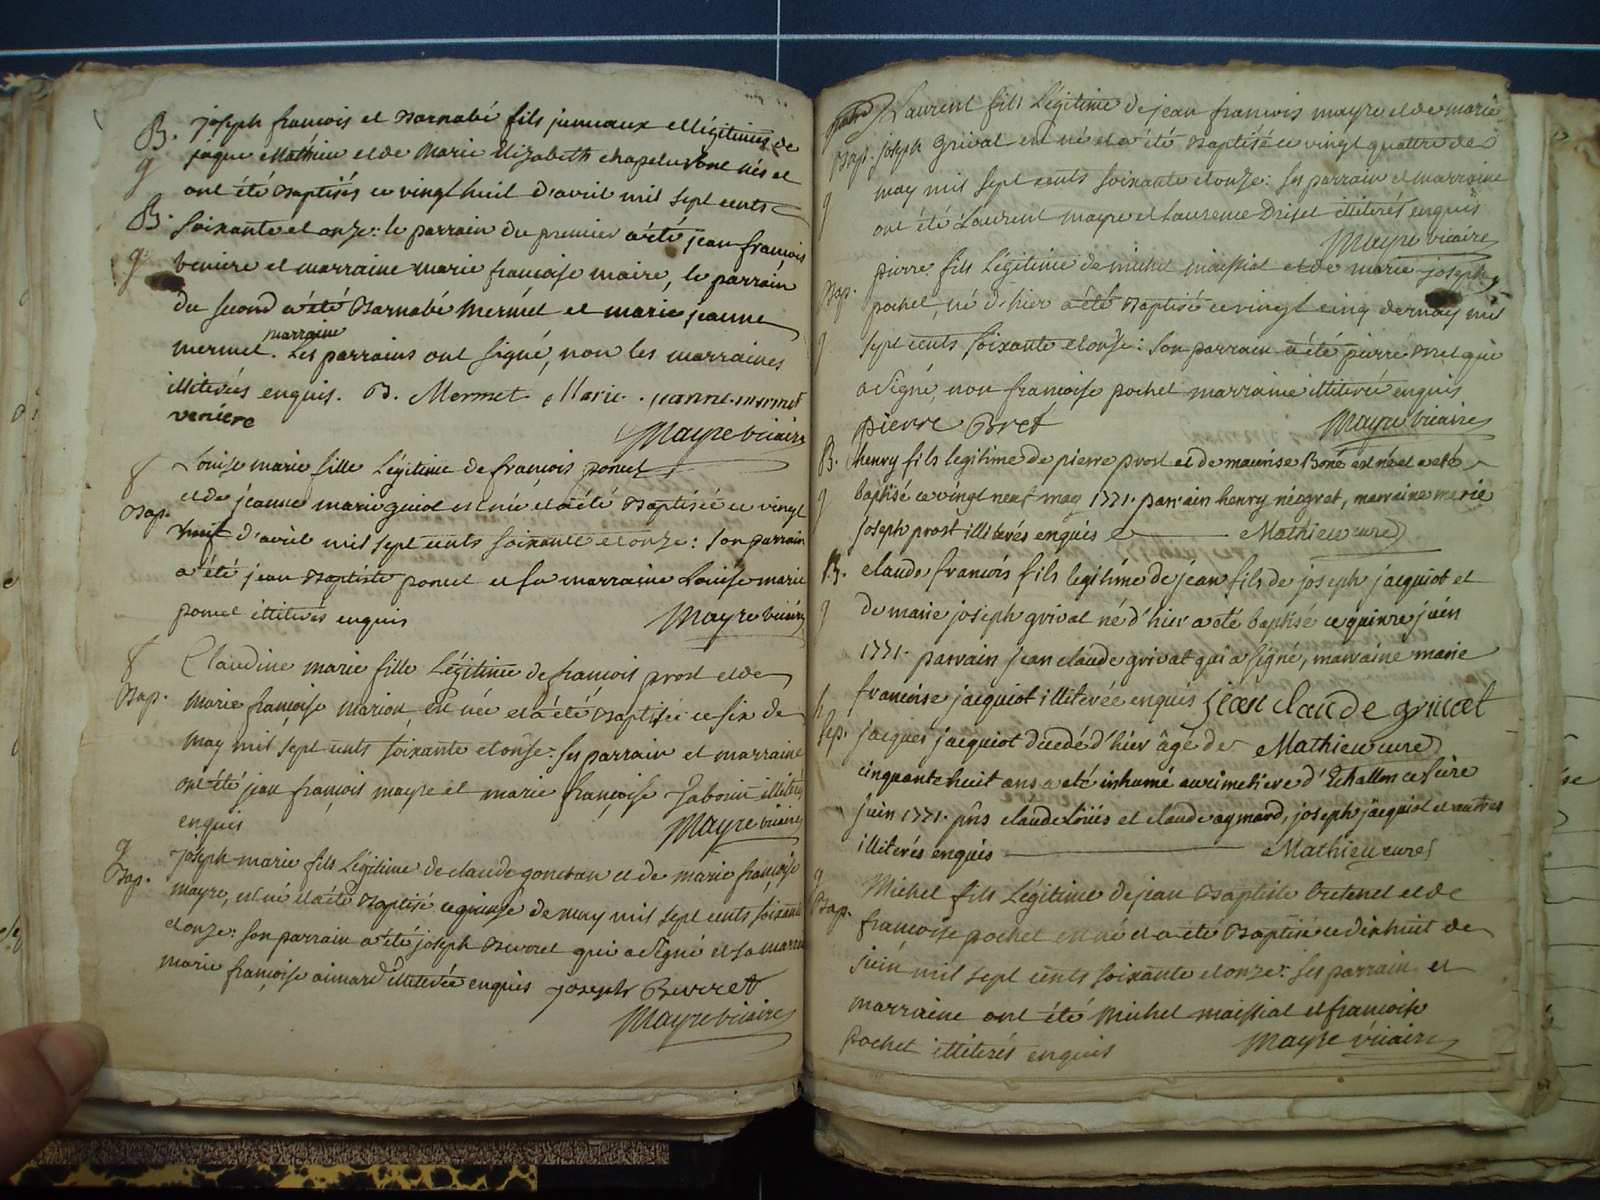 B. joseph francois et Barnabé fils jumeaux et légitimes de
g jaque Mathieu et de Marie Elizabeth chapelu sont nés et
ont été Baptisés ce vingt huit d'avril mil sept cents
B. soixante et onze: le parrain du premier a été jean françois
g veniere et marraine marie françoise maire, le parrain
du second a été Barnabé Mermet et marie jeanne
marraine
mermet. Les parrains ont signé, non les marraines
illiterées enquis. B. Mermet Marie jeanne mermet
veniere
Mayre vicaire
f Louise marie fille Légitime de françois poncet
Bap. et de jeanne marie guiot est née et a été Baptisée ce vingt
huit d'avril mil sept cents soixante et onze: son parrain
a été jean Baptiste poncet et sa marraine Louise marie
poncet illiterés enquis
Mayre vicaire
f Claudine marie fille Légitime de françois prost et de
Bap. Marie françoise Marion, est née et a été Baptisée ce six de
may mil sept cents soixante et onze: ses parrain et marraine
ont été jean françois mayre et marie françoise illiterés
enquis
Mayre vicaire
g joseph-marie fils Légitime de claude et de marie françoise
Bap. mayre, est né et a été Baptisé ce quinze de may mil sept cents soixante
et onze: son parrain a été joseph Burret qui a signé et sa marraine
marie françoise aimard illiterée enquis joseph Burret
Mayre vicaire
Laurent fils Légitime de jean francois mayre et de marie
Bap. joseph Grivat est né et a été Baptisé ce vingt quattre de
g may mil sept cents soixante et onze: ses parrain et marraine
ont été Laurent mayre et Laurence illiterés enquis
Mayre vicaire
pierre fils Légitime de michel maissiat et de marie joseph
Bap. pochet, né d'hier a été Baptisé ce vingt cinq de may mil
g sept cents soixante et onze: son parrain a été pierre Bret qui
a signé, non francoise pochet marraine illiterée enquis
pierre Bret
Mayre vicaire
B. henry fils legitime de pierre prost et de maurise Boné est né et a été
g baptisé ce vingt neuf may 1771. parrain henry niogret, marraine marie
joseph prost illiterés enquis Mathieu curé
B. claude françois fils legitime de jean fils de joseph jacquiot et
g de marie joseph grivat né d'hier a été baptisé ce quinze juin
1771. parrain jean claude grivat qui a signé, marraine marie
francoise jacquiot illiterée enquis jean claude grivat
h
Sep. jacques jacquiot decedé d'hier âgé de Mathieu curé
cinquante huit ans a eté inhumé au cimetiere d'Echallon ce seize
juin 1771. pñs claude loüis et claude aymard, joseph jacquiot et autres
illiterés enquis Mathieu curé
g Michel fils Légitime de jean Baptiste tretenet et de
Bap. françoise pochet est né et a été Baptisé ce dix huit de
juin mil sept cents soixante et onze: ses parrain et
marraine ont été Michel maissiat et francoise
pochet illiterés enquis
Mayre vicaire